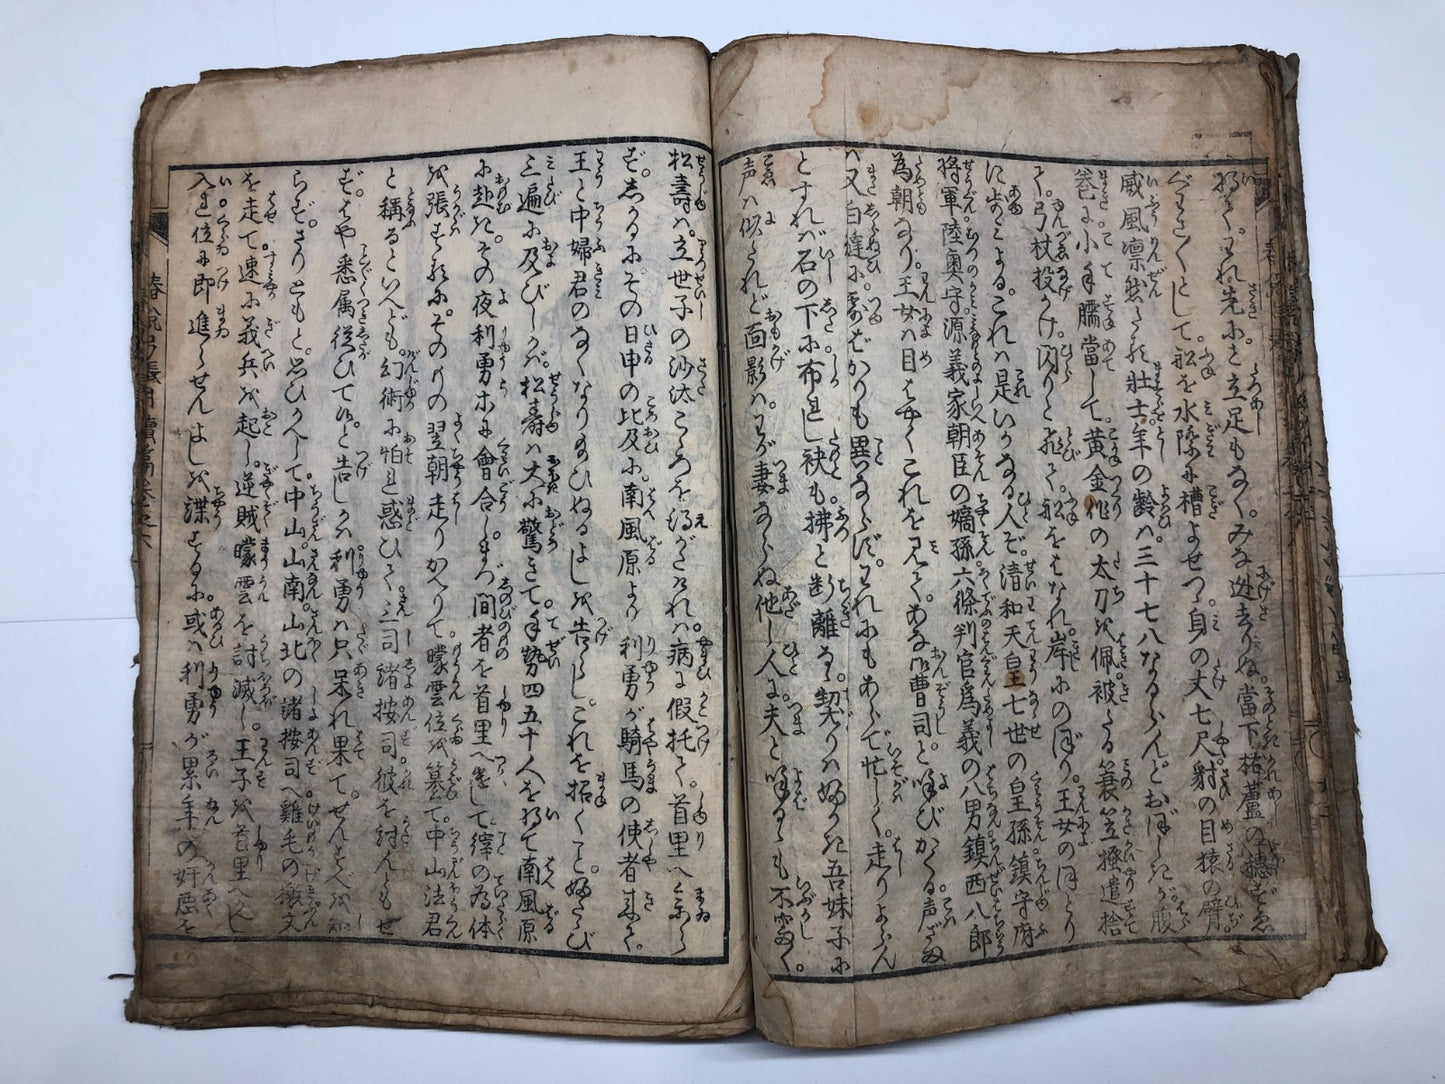 威風凛然たる壮士年の齢ハ三十七八なるらんとおぼしきが腹
巻に小手臑當して黄金作の太刀を佩被たる蓑笠掻遣捨
て弓杖投かけ閃りと飛て船をはなれ岸にのぼり王女のほとり
に歩よるこれハ是いかなる人ぞ清和天皇七世の皇孫鎮守府
将軍陸奥守源義家朝臣の嫡孫六條判官爲義の八男鎮西八郎
為朝なり王女ハ目はやくこれを見てあな御曹司と呼びかくる声だね
ハ又白縫に露ばかりも異ならずわれにもあらで忙しく走りよらん
とすれバ石の下に布れし袂も拂と断離る契りハ婦かき吾妹子に
声ハ似たれど面影ハわが妻ならぬ他し人に夫と呼るゝも不審く
松壽ハ立世子の沙汰こゝろを得がたけれバ病に假托て首里へ参ら
ずしかるにその日申の比及に南風原より利勇が騎馬の使者来て
王と中婦君のなくなりたまひぬるよしを告らしこれを招くこと婦たゝび
三遍に及びしかバ松壽ハ大に驚きて手勢四五十人を将て南風原
に赴きその夜利勇ホに會合しまづ間者を首里へ遣して縡の為体
を張するにそのものゝ翌朝走りかへりて曚雲位を簒て中山法君
と稱るといへども幻術に怕れ惑ひて三司諸按司彼を討んともせ
ずはや悉属従ひて候と告しかバ利勇ハ只呆れ果てせんすべを知
らずさりともと思ひかへして中山山南山北の諸按司へ雞毛の檄文
を走て速に義兵を起し逆賊曚雲を討滅し王子を首里へかへし
入れ位に即進らせんよしを渫するに或ハ利勇が累年の奸悪を
春説弓張月續篇巻之六